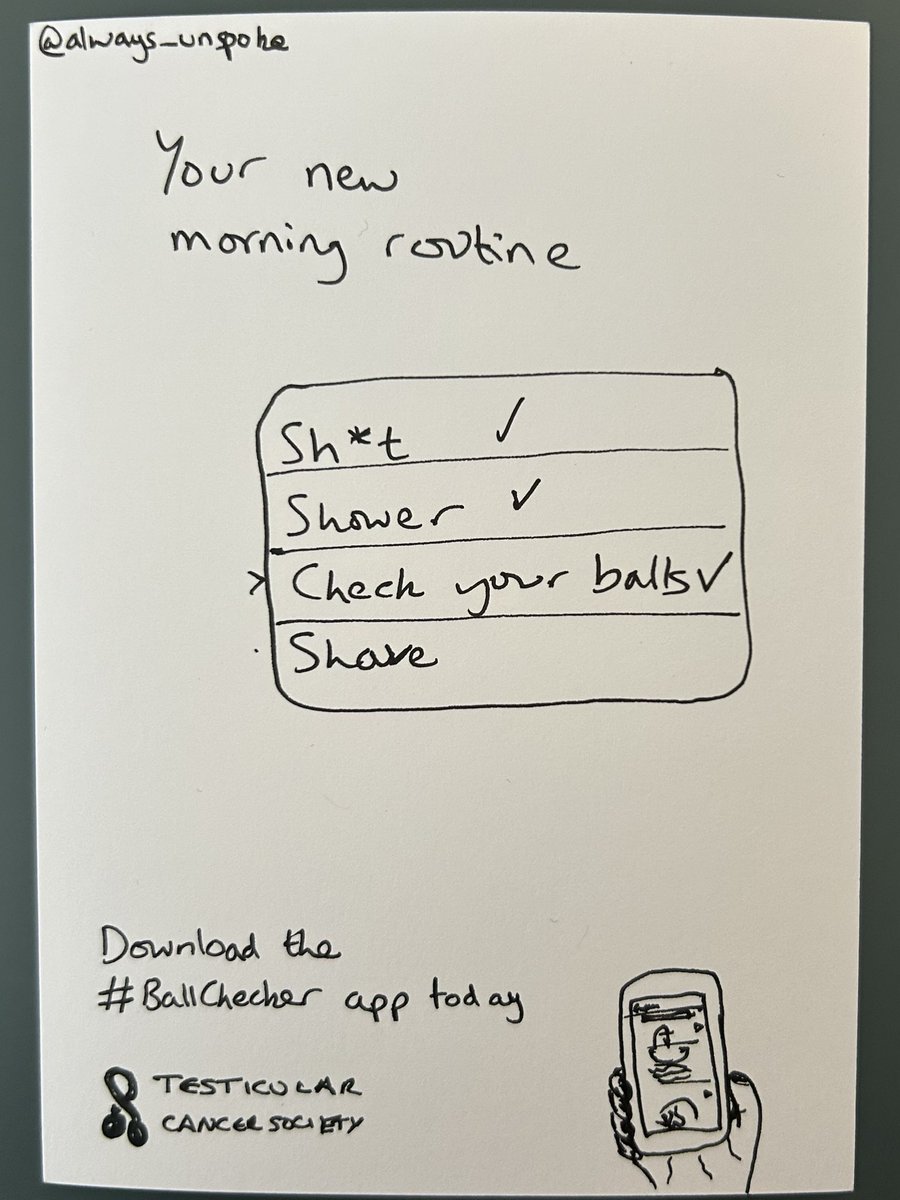 @always_unspoke
Your new
morning routine
Sh*t ✓
Shower ✓
> Check your balls ✓
Shave
Download the
#BallChecker app today
TESTICULAR
CANCER SOCIETY